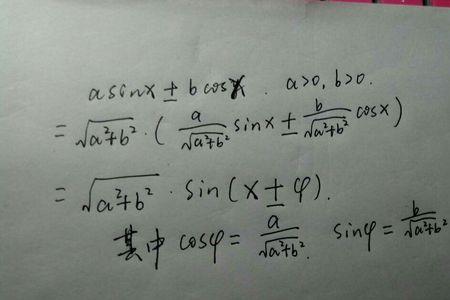 a sinx ± b cosx. a>0, b>0.
= √(a²+b²) · ( a/√(a²+b²) sinx ± b/√(a²+b²) cosx )
= √(a²+b²) · sin (x ± φ).
其中 cosφ = a/√(a²+b²). sinφ = b/√(a²+b²)